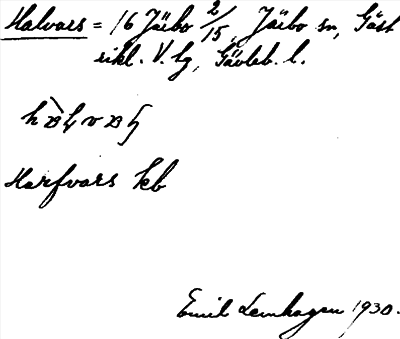 Halvars = 16 Jäebo 2/15, Jäebo sn, Gäst
rikl. V. hg, Gävleb. l.
Harfvars kb
Emil Lennhagen 1930.